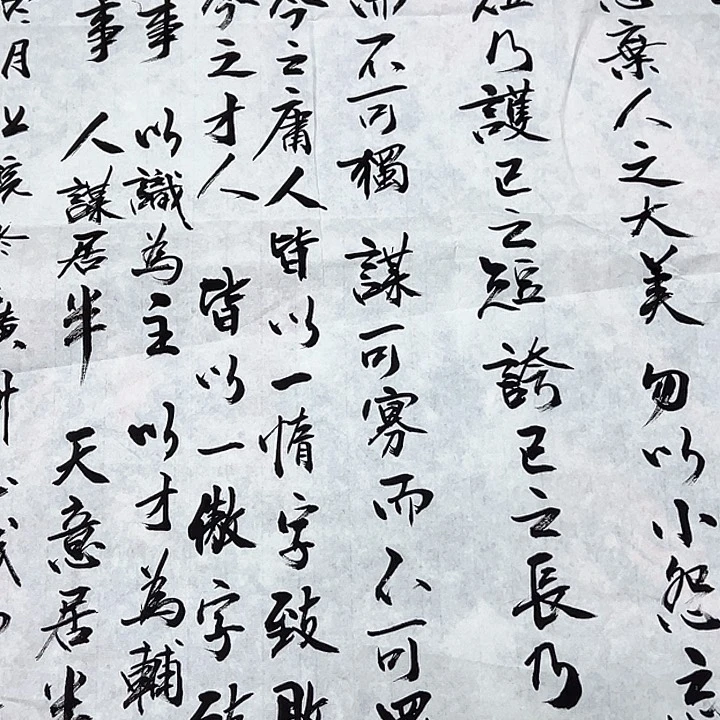 棄人之大美 勿以小怨之
乃護己之短 誇己之長乃
而不可獨 謀可寡而不可
今之庸人皆以一惰字致敗
今之才人 皆以一傲字致
事 以識為主 以才為輔
事 人謀居半 天意居半
月